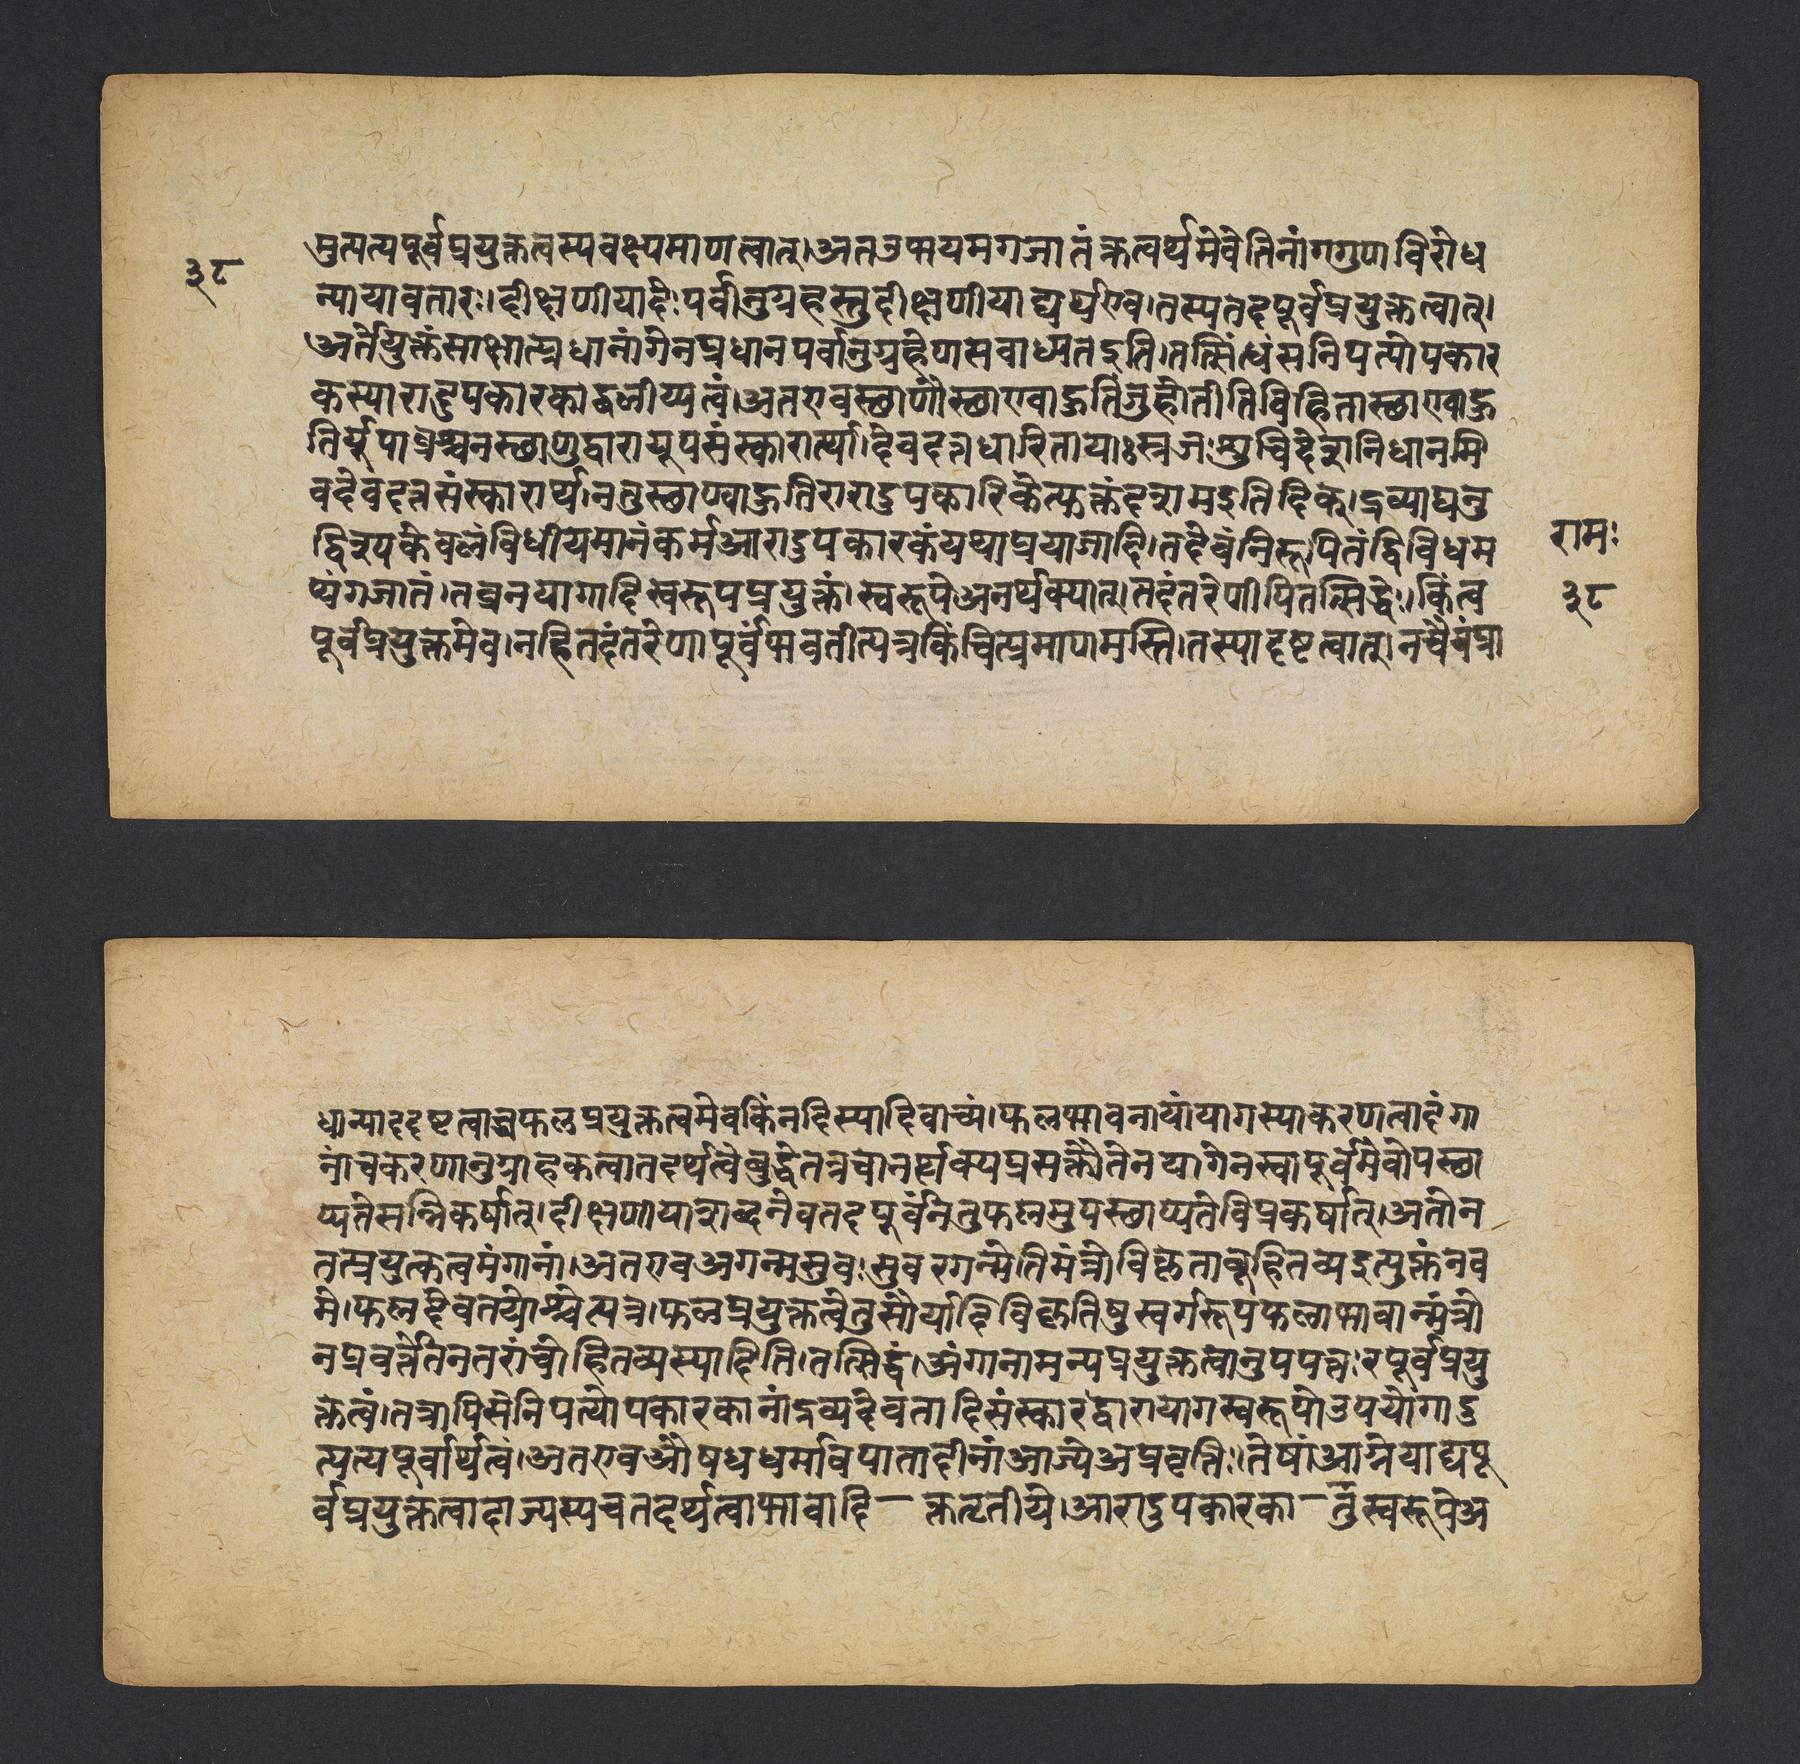 मुत्पत्यपूर्वप्रयुक्तत्वस्यवक्ष्यमाणत्वात्।अतउभयमगजातंक्रत्वर्थमेवेतिनांगगुणविरोध
३८
न्यायावतारः।दीक्षणीयादेःपर्वानुग्रहस्तुदीक्षणीयाद्यर्थएव।तस्यतदपूर्वप्रयुक्तत्वात्।
अतोयुक्तंसाक्षात्प्रधानांगेनप्रधानपर्वानुग्रहेणसवाध्यतइति।तत्सिद्धंसनिपत्योपकार
कस्यारादुपकारकाद्बलीय्यत्वं।अतएवस्थाणौस्थाण्वाहुतिंजुहोतीतिविहितास्थाण्वाहु
तिर्यूपाव्रश्चनस्थाणुद्वारायूपसंस्कारार्त्था।देवदत्तधारितायाःस्रजःशुचिदेशनिधानमि
वदेवदत्तसंस्कारार्थं।नतुस्थाण्वाहुतिरारादुपकारिकेत्युक्तंदशमइतिदिक्।द्रव्याद्यनु
द्दिश्यकेवलंविधीयमानंकर्मआरादुपकारकंयथाप्रयाजादि।तदेवंनिरूपितंद्विविधम
रामः
प्यंगजातं।तच्चनयागादिस्वरूपप्रयुक्तं।स्वरूपेअनर्थक्यात्।तदंतरेणापितत्सिद्धेः।किंत्व
३८
पूर्वप्रयुक्तमेव।नहितदंतरेणापूर्वंभवतीत्यत्रकिंचित्प्रमाणमस्ति।तस्यादृष्टत्वात्।नचैवंप्रा
धान्याददृष्टत्वाच्चफलप्रयुक्तत्वमेवकिंनदिस्यादिवाच्यं।फलभावनायांयागस्याकरणत्वादंगा
नांचकरणानुग्राहकत्वातदर्थत्वेबुद्धेतत्रचानर्त्थक्यप्रसक्तौतेनयागेनस्वापूर्वमेवोपस्था
प्यतेसन्निकर्षात्।दीक्षणीयाशब्दनेवतदपूर्वंनतुफलमुपस्थाप्यतेविप्रकर्षात्।अतोन
तत्प्रयुत्कत्वमंगानां।अतएवअगन्मसुवःसुवरगन्मेतिमंत्रोविकृतावूहितव्यइत्युक्तंनव
मे।फलदेवतयोश्चेत्यत्र।फलप्रयुक्तत्वेतुसौर्यादिविकृतिषुस्वर्गरूपफलाभावान्मंत्रो
नप्रवर्त्तेतनतरांचोहितव्यस्यादिति।तत्सिद्धं।अंगानामन्यप्रयुक्तत्वानुपपत्तःरपूर्वप्रयु
क्तत्वं।तत्रापिसंनिपत्योपकारकानांद्रव्यदेवतादिसंस्कारद्वारायागस्वरूपोउपयोगादु
त्पत्यपूर्वार्थत्वं।अतएवऔषधधर्मावपातादीनांआज्येअप्रवृत्तिः।तेषांआग्नेयाद्यपू
र्वप्रयुक्तत्वादाज्यस्यचतदर्थत्वाभावादि—क्तंतृतीये।आरादुपकारका—तुस्वरूपेअ